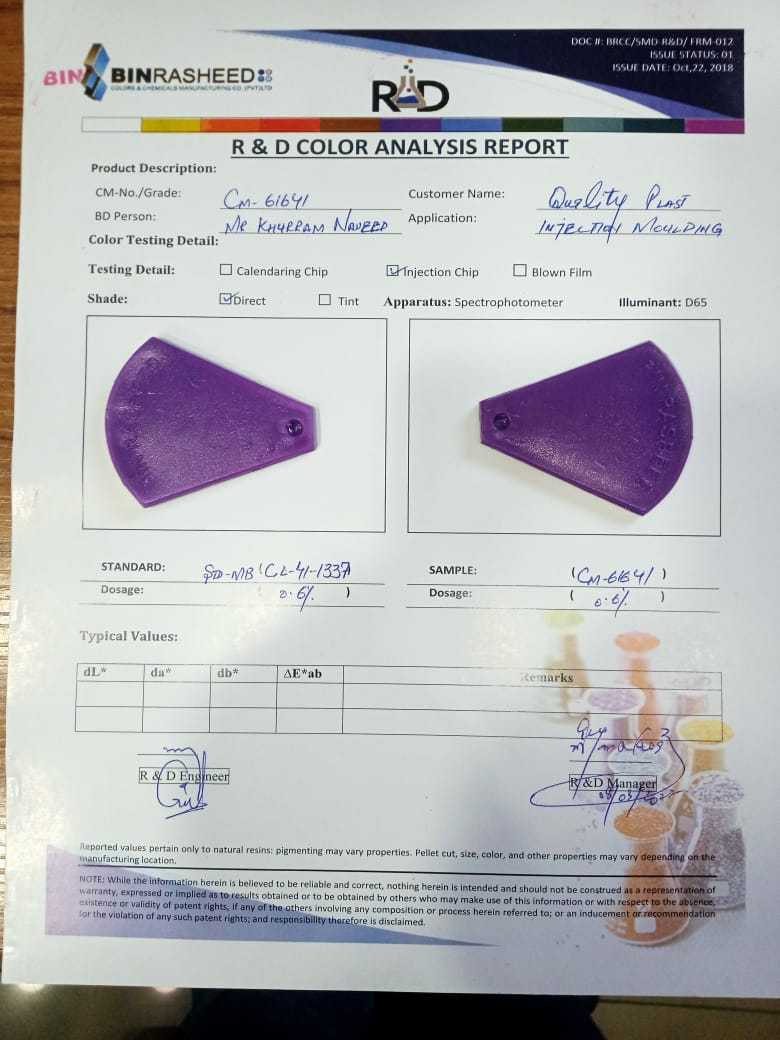 DOC #: BRCC/SMD-R&D/ FRM-012
ISSUE STATUS: 01
ISSUE DATE: Oct,22, 2018
BIN
BINRASHEED
COLORS & CHEMICALS MANUFACTURING CO. (PVT)LTD
R&D
R & D COLOR ANALYSIS REPORT
Product Description:
CM-No./Grade: CM-61641 Customer Name: Quality Plast
BD Person: Mr Khurram Naveed Application: Injection Moulding
Color Testing Detail:
Testing Detail: Calendaring Chip Injection Chip Blown Film
Shade: Direct Tint Apparatus: Spectrophotometer Illuminant: D65
BINRASHEED
STANDARD: STD-MB (CL-41-1337) SAMPLE: (CM-61641)
Dosage: ( 0.6% ) Dosage: ( 0.6% )
Typical Values:
dL* da* db* ΔE*ab Remarks
R & D Engineer R &D Manager
Reported values pertain only to natural resins: pigmenting may vary properties. Pellet cut, size, color, and other properties may vary depending on the
manufacturing location.
NOTE: While the information herein is believed to be reliable and correct, nothing herein is intended and should not be construed as a representation of
warranty, expressed or implied as to results obtained or to be obtained by others who may make use of this information or with respect to the absence,
existence or validity of patent rights, if any of the others involving any composition or process herein referred to; or an inducement or recommendation
for the violation of any such patent rights; and responsibility therefore is disclaimed.